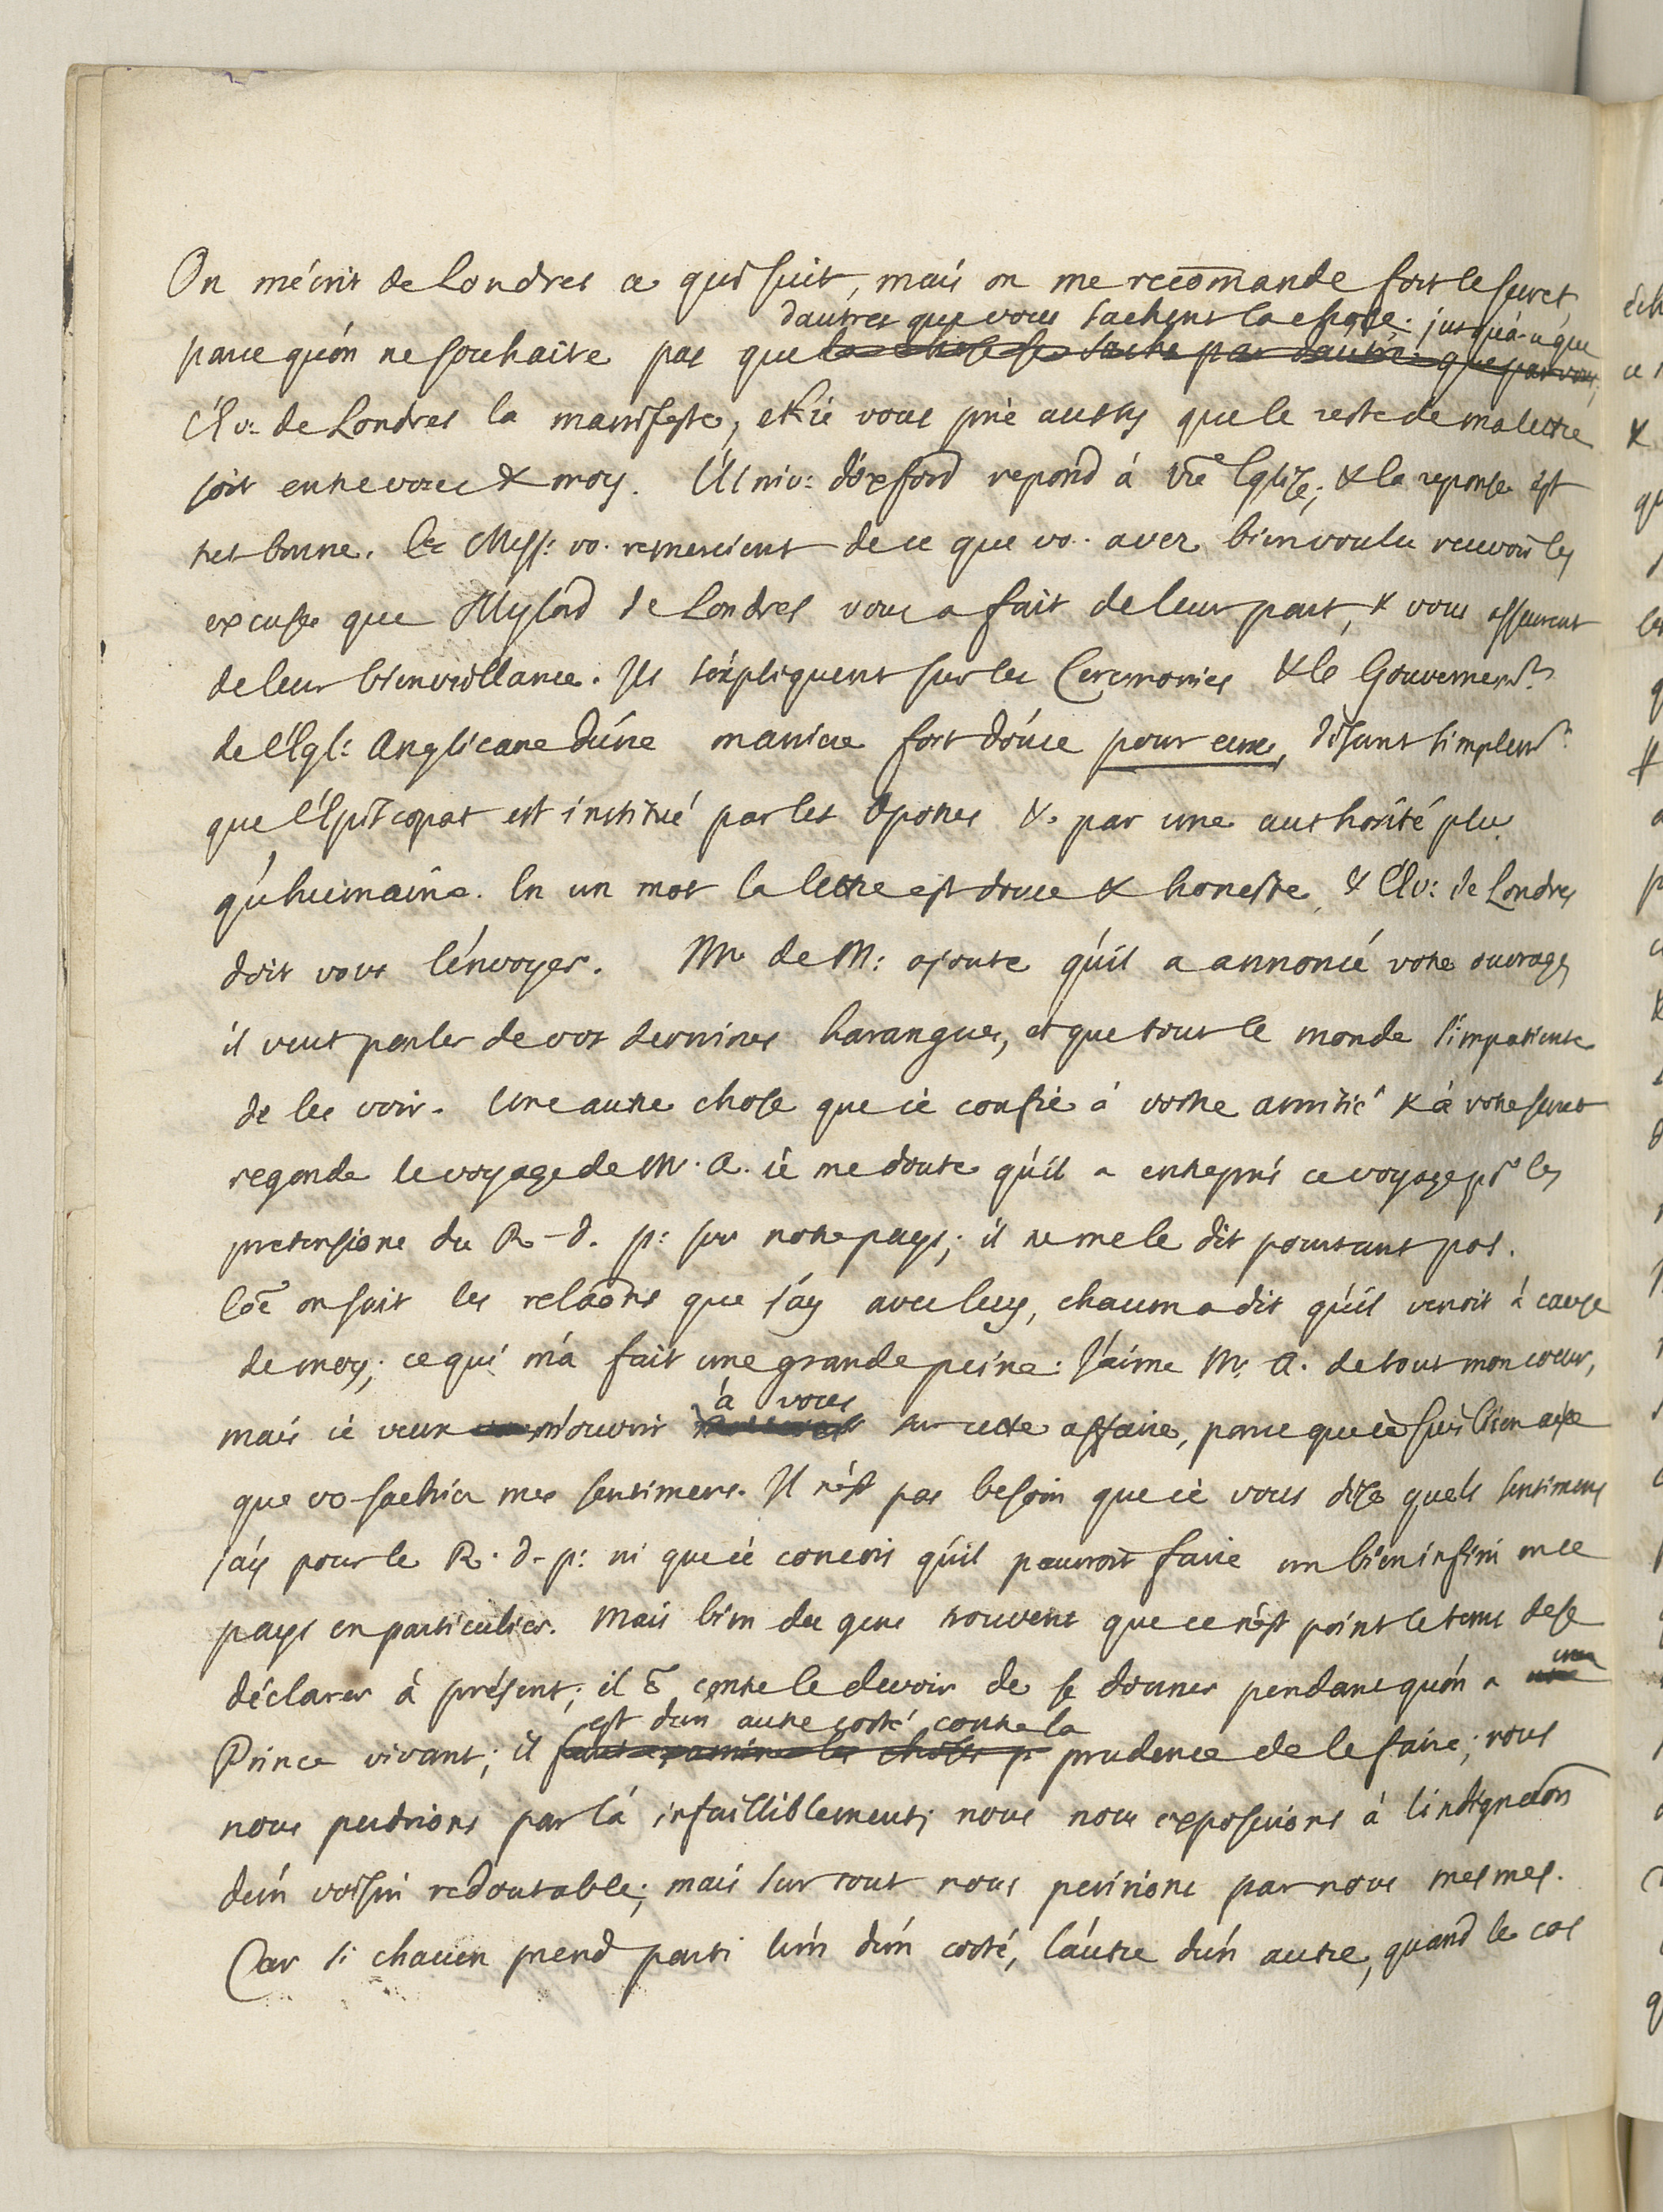 On m'écrit de Londres ce qui suit, mais on me recōmande fort le secret,
d'autres que vous sachent la chose. jusqu'à-ce que
parce qu'on ne souhaite pas que la chose se sache par d'autres que par vous,
l'Ev: de Londres la manifeste, et ie vous prie aussy que le reste de ma lettre
soit entre vous & moy. L'Univ: d'Oxford repond à vrē Eglise; & la reponse est
tres bonne. Ces Mess: vo. remercient de ce que vo. avez bien voulu recevoir les
excuses que Mylord de Londres vous a fait de leur part, & vous asseurent
de leur bienveillance. Ils s'expliquent sur les Ceremonies & le Gouvernemt.
de l'Egl: Anglicane d'une maniere fort douce pour eux, disant simplemt.
que l'Episcopat est institué par les Apotres &. par une authorité plus
qu'humaine. En un mot la lettre est douce & honeste, & l'Ev: de Londres
doit vous l'envoyer. Mr. de M: ajoute qu'il a annoncé votre ouvrage,
il veut parler de vos dernieres harangues, et que tout le monde s'impatiente
de les voir. Une autre chose que ie confie à vostre amitié & à votre secret
regarde le voyage de Mr. A. ie me doute qu'il a entrepris ce voyage pr. les
pretensions du R-d. p: sur notre pays; il ne me le dit pourtant pas.
Cōe on sait les relaōns que j'ay avec luy, chacun a dit qu'il venoit à cause
de moy; ce qui m'a fait une grande peine: J'aime Mr. A. de tout mon coeur,
à vous
mais ie veux m'ouvrir sur cette affaire, parce que ie suis bien aise
que vo. sachiez mes sentimens. Il n'est pas besoin que ie vous dise quels sentimens
j'ay pour le R. d. p: ni que ie concois qu'il pourroit faire un bien infini en ce
pays en particulier. Mais bien des gens trouvent que ce n'est point le tems de se
un
déclarer à présent; il ē contre le devoir de se donner pendant qu'on a
est d'un autre costé contre la
Prince vivant; il faut examiner les choses pr. prudence de le faire; nous
nous perdrions par là infailliblement; nous nous exposerions à l'indignaōn
d'un voisin redoutable; mais sur tout nous peririons par nous mesmes.
Car si chacun prend parti l'un d'un costé, l'autre d'un autre, quand le cas